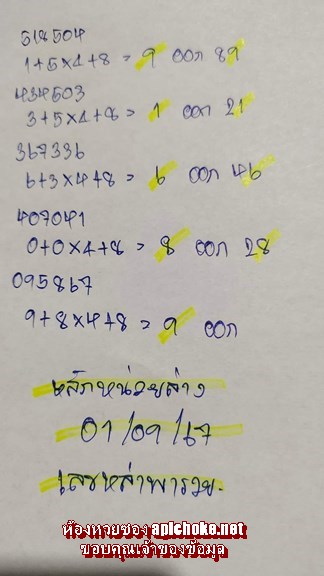 518504
1+5×4+8 = 9 ออก 89
434503
3+5×4+8= 1 ออก 21
367336
6+3×4+8= 6 ออก 46
407041
0+0×4+8= 8 ออก 28
095867
9+8×4+8= 9 ออก
หลักหน่วยล่าง
01/09/67
เลขหล่าพารวย.
ห้องหวยซอง apichoke.net
ขอบคุณเจ้าของข้อมูล